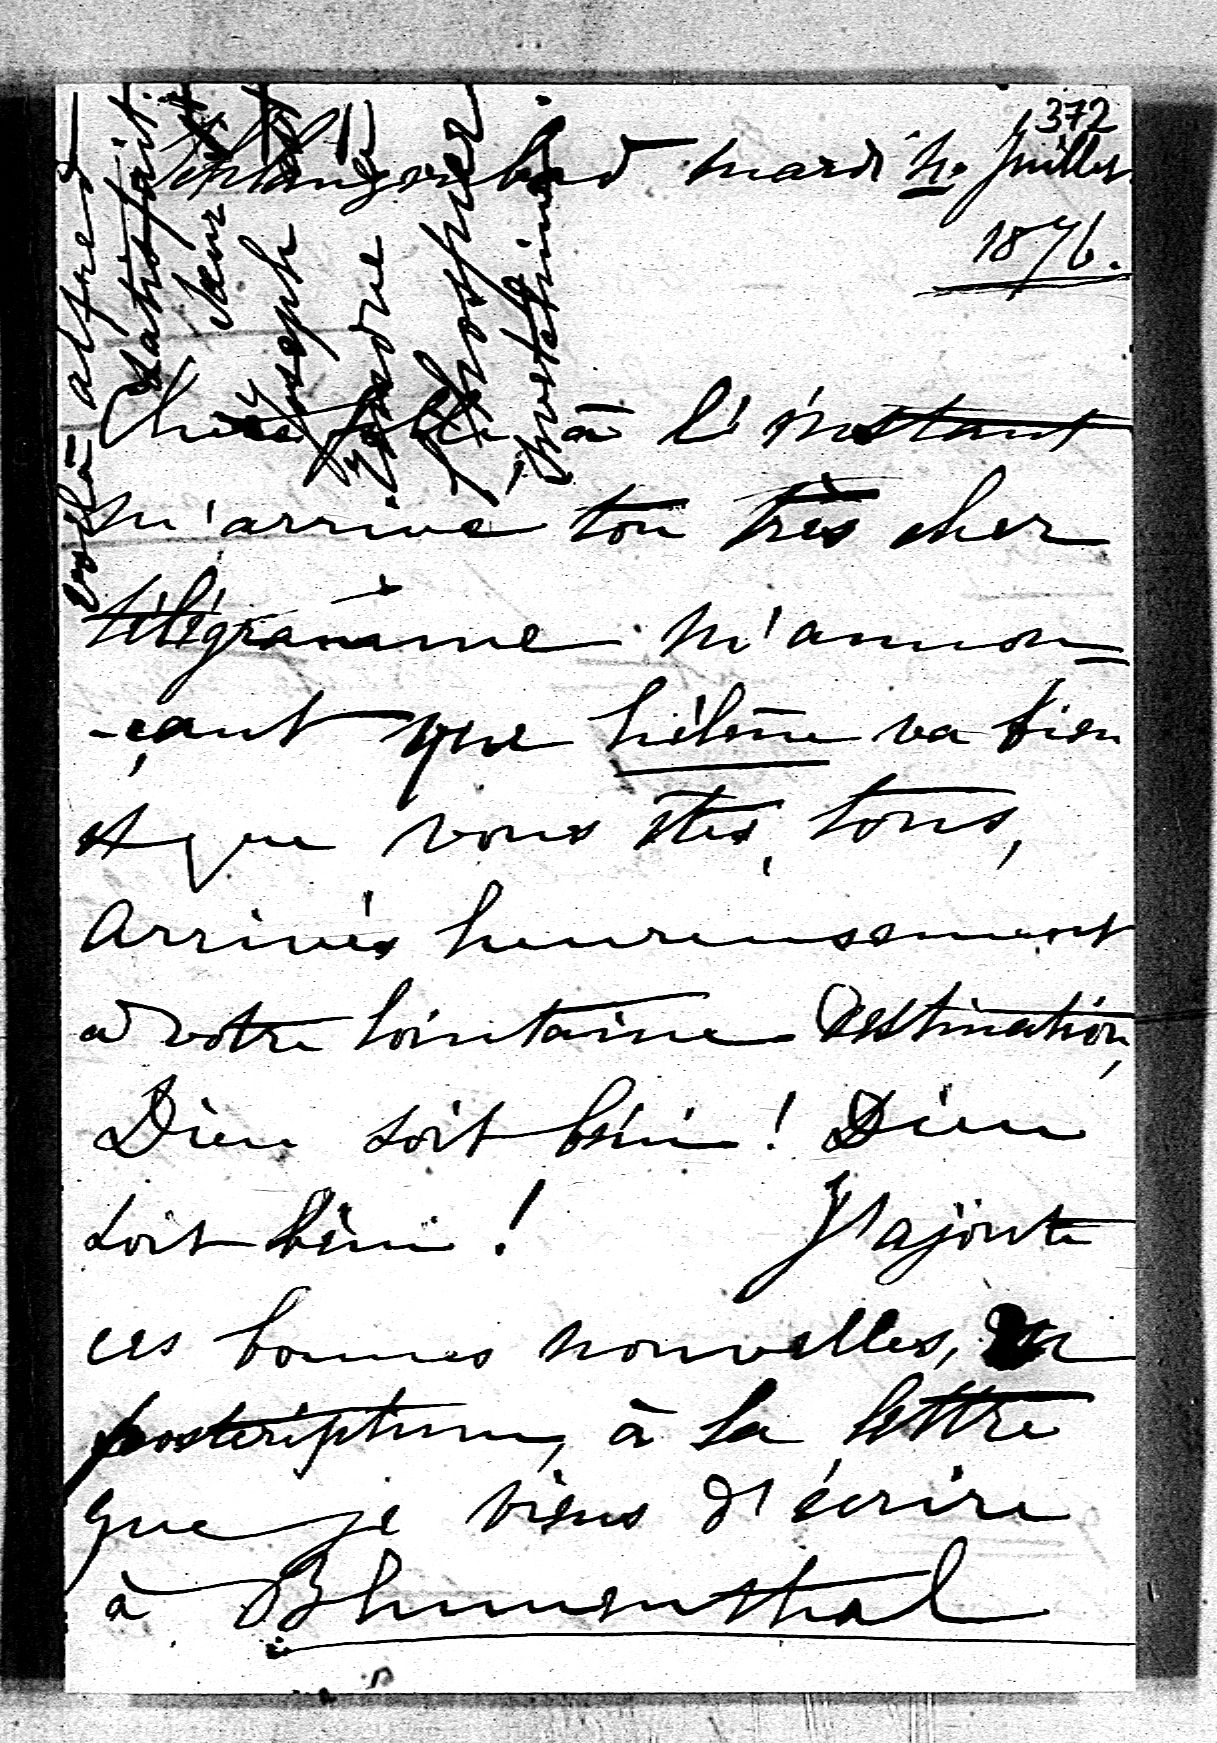 372
Schlangenbad mardi 11. Juillet
1876.
Chère fille, à l'instant
m'arrive ton très cher
télégramme m'annon=
-çant que hélène va bien
et que vous êtes, tous,
arrivés heureusement
a votre lointaine Destination,
Dieu soit béni! Dieu
soit béni! J'ajoute
ces bonnes nouvelles, en
postcriptum, à la lettre
que je viens d'écrire
à Blumenthal
voilà alfred
satisfait.
soeur
Joseph
prospérer